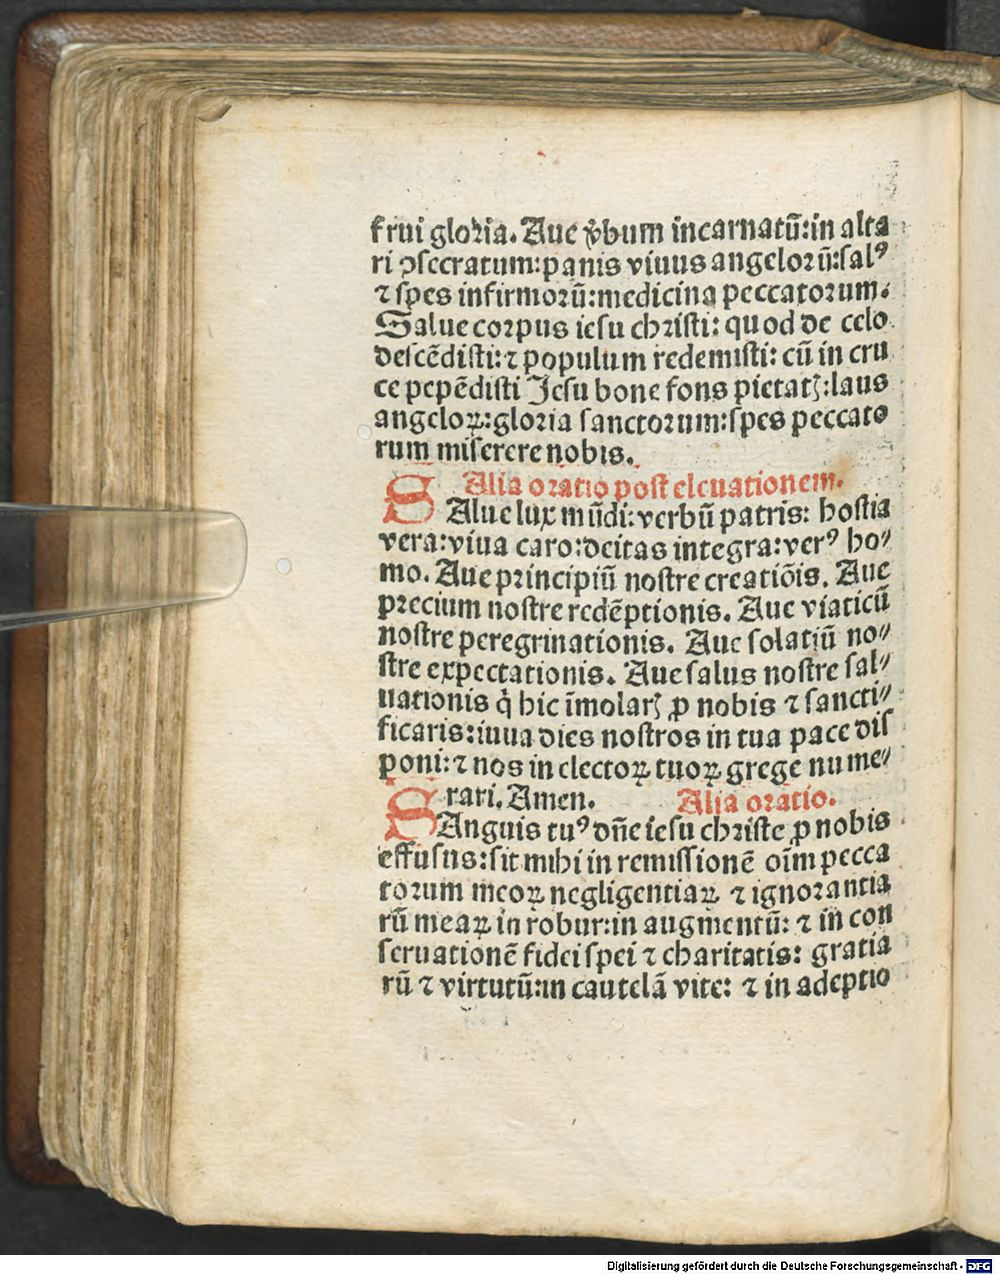 frui gloꝛia. Aue v̾bum incarnatū:in alta
ri ꝯsecratum:panis viuus angeloꝛū:salꝰ
⁊ spes infirmoꝛū:medicina peccatoꝛum.
Salue coꝛpus iesu chꝛisti: quod de celo
descēdisti:⁊ populum redemisti: cū in cru
ce pepēdisti Jesu bone fons pietatꝫ:laus
angeloꝝ:gloꝛia sanctoꝛum:spes peccato
rum miserere nobis.
Alia oꝛatio post eleuationem.
SAlue lux mūdi:verbū patris: hostia
vera:viua caro:deitas integra:verꝰ ho⸗
mo. Aue pꝛincipiū nostre creatiōis. Aue
pꝛecium nostre redēptionis. Aue viaticū
nostre peregrinationis. Aue solatiū no⸗
stre expectationis. Aue salus nostre sal⸗
uationis q̇ hic īmolarꝫ ꝑ nobis ⁊ sancti⸗
ficaris:iuua dies nostros in tua pace dis
poni:⁊ nos in electoꝝ tuoꝝ grege nume⸗
rari. Amen. Alia oꝛatio.
SAnguis tuꝰ dn̄e iesu chꝛiste ꝓ nobis
effusus:sit mihi in remissionē oīm pecca
toꝛum meoꝝ negligentiaꝝ ⁊ ignoꝛantia
rū meaꝝ in robur:in augmentū: ⁊ in con
seruationē fidei spei ⁊ charitatis: gratia
rū ⁊ virtutū:in cautelā vite: ⁊ in adeptio
Digitalisierung gefördert durch die Deutsche Forschungsgemeinschaft - DFG